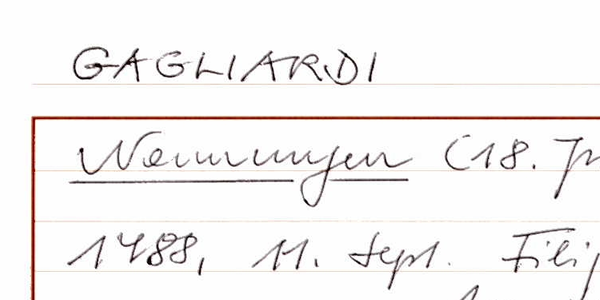 GAGLIARDI
Nennungen (18. J
1488, 11. Sept. Filip